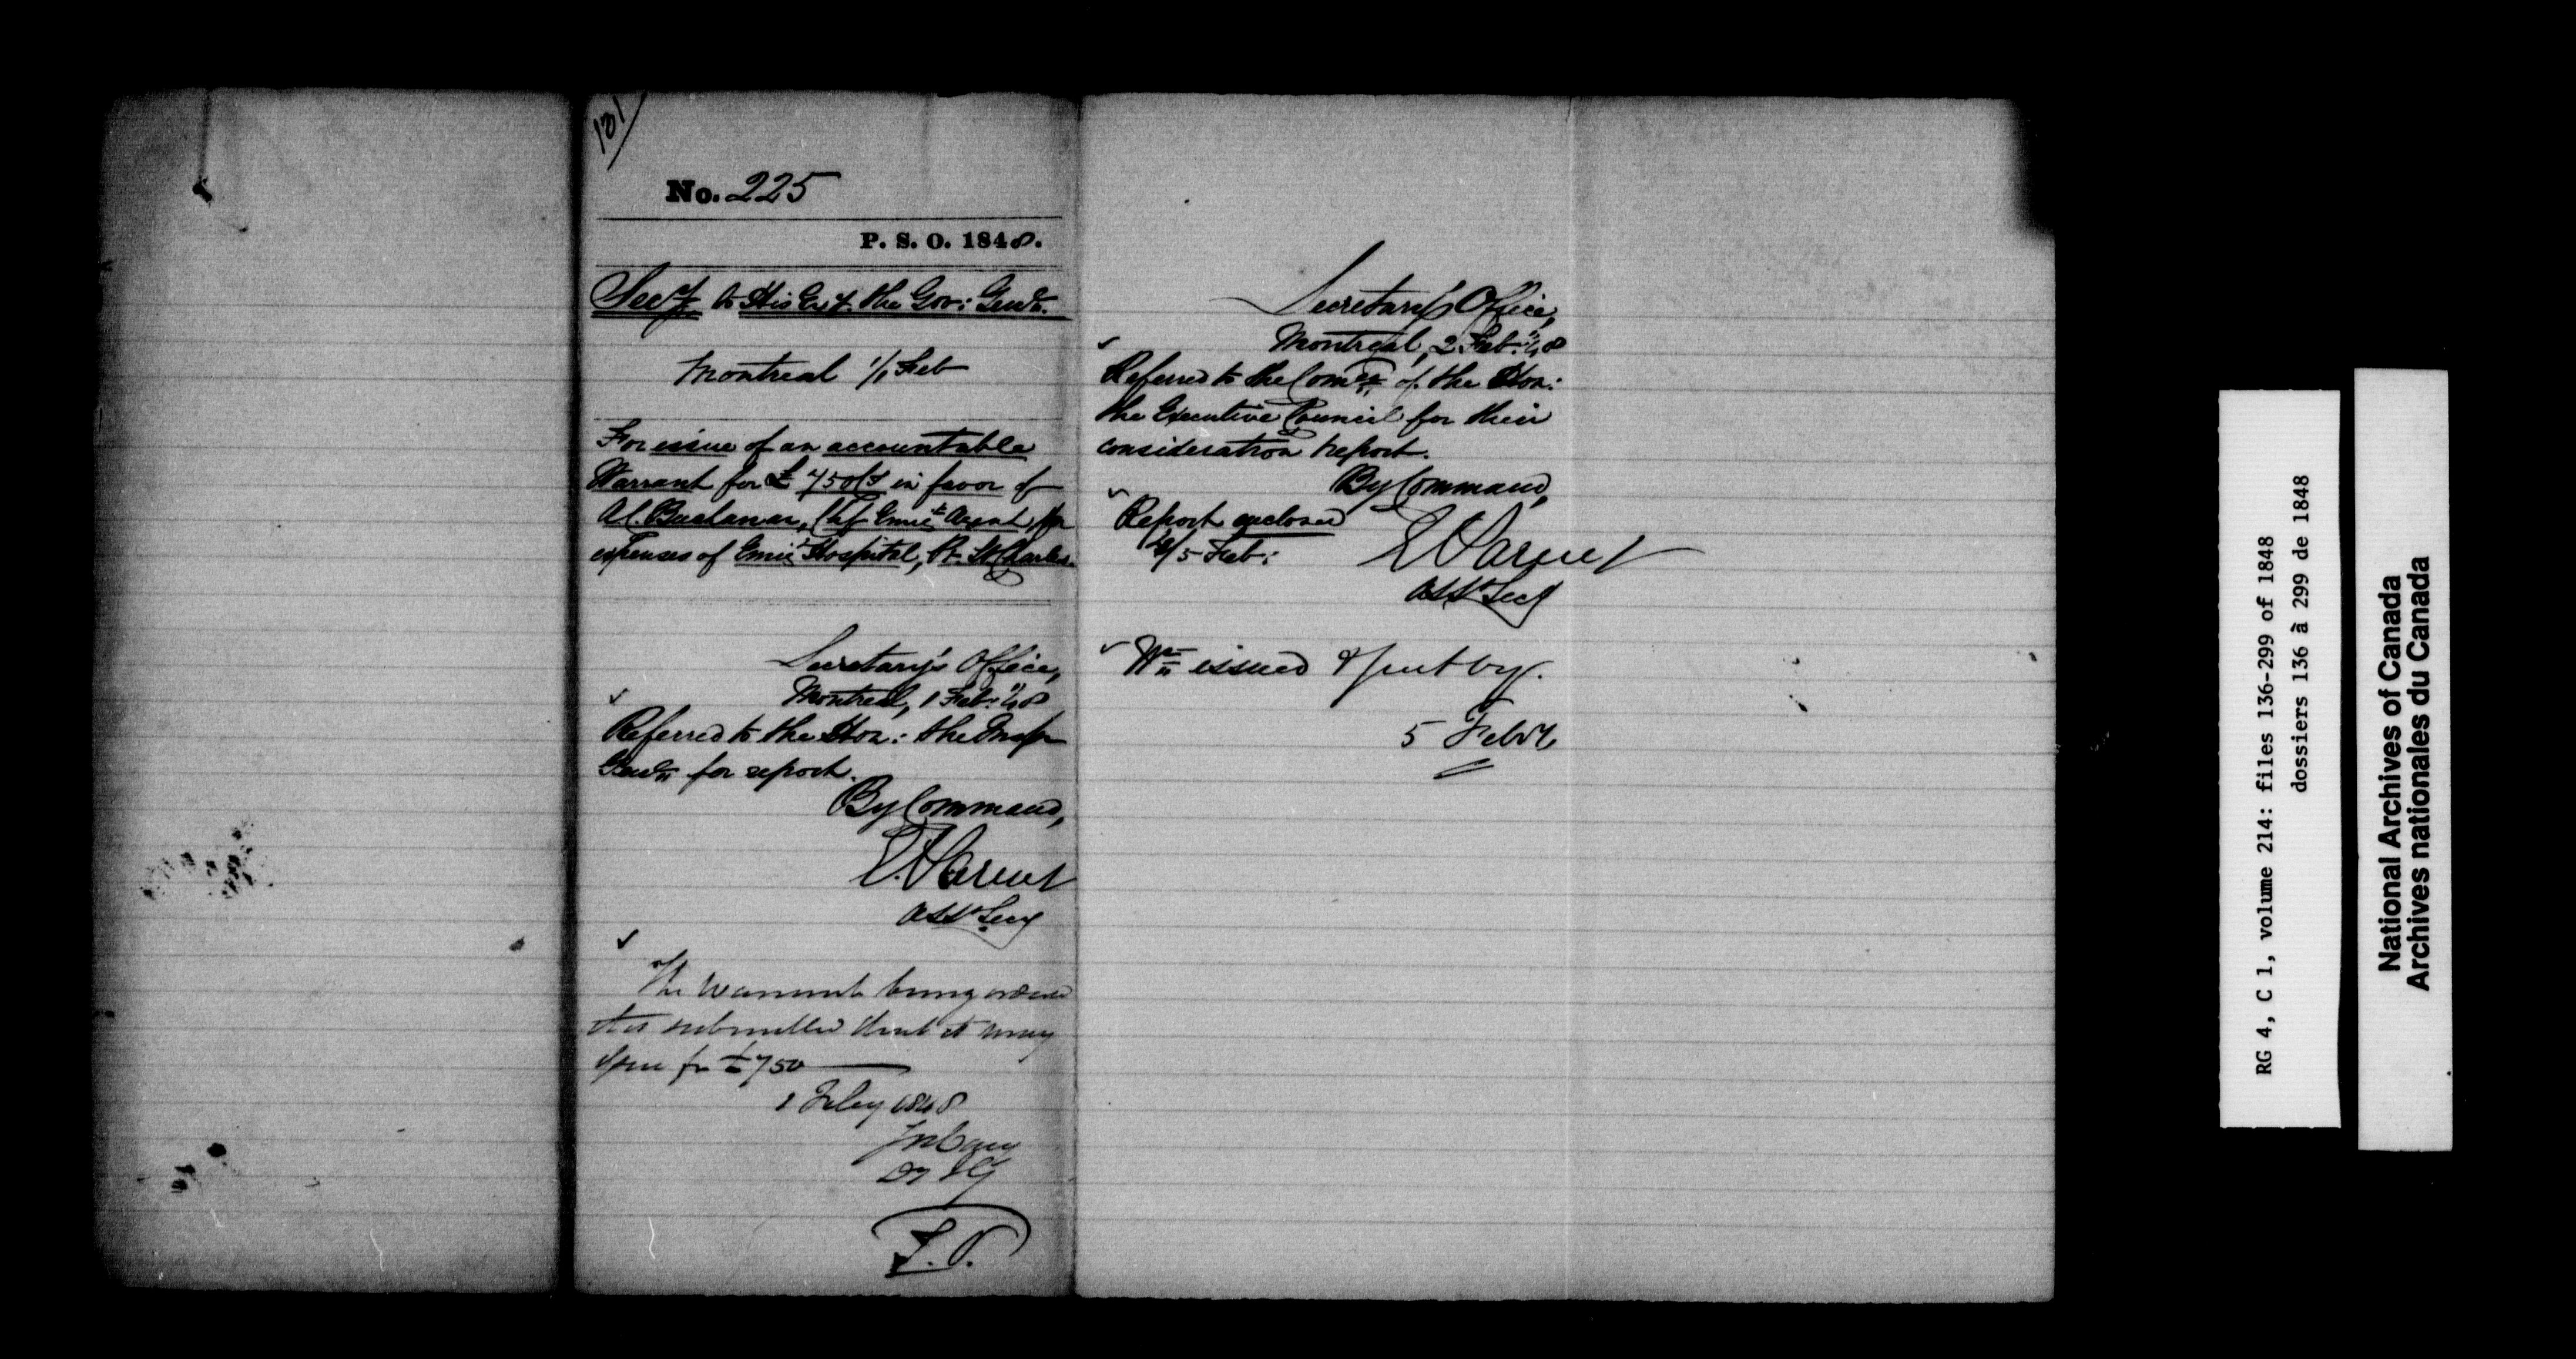 131
No. 225
P. S. O. 1848.
Secy to His Excy. the Gov: Genl.
Montreal 1/1 Feb
For issue of an accountable
Warrant for £750 Cy in favor of
A.C. Buchanan, Chf Emigt Agent for
expenses of Emigt Hospital, Pt. St Charles.
Secretary's Office,
Montreal, 1 Feb: 1/48
Referred to the Hon: the Inspr
Genl for report.
By Command,
E. Parent
Asst Secy
The Warrant being
it is submitted that it may
for £750
1 Feby 1848
Jos Cary
Dy I G
T.P.
Secretary's Office,
Montreal, 2 Feb: 1/48
Referred to the Comee of the Hon:
the Executive Council for their
consideration & report.
By Command,
Report enclosed
5 Feb:
E Parent
Asst Secy
Wt issued & put by.
5 Feby
RG 4, C 1, volume 214: files 136-299 of 1848
dossiers 136 à 299 de 1848
National Archives of Canada
Archives nationales du Canada